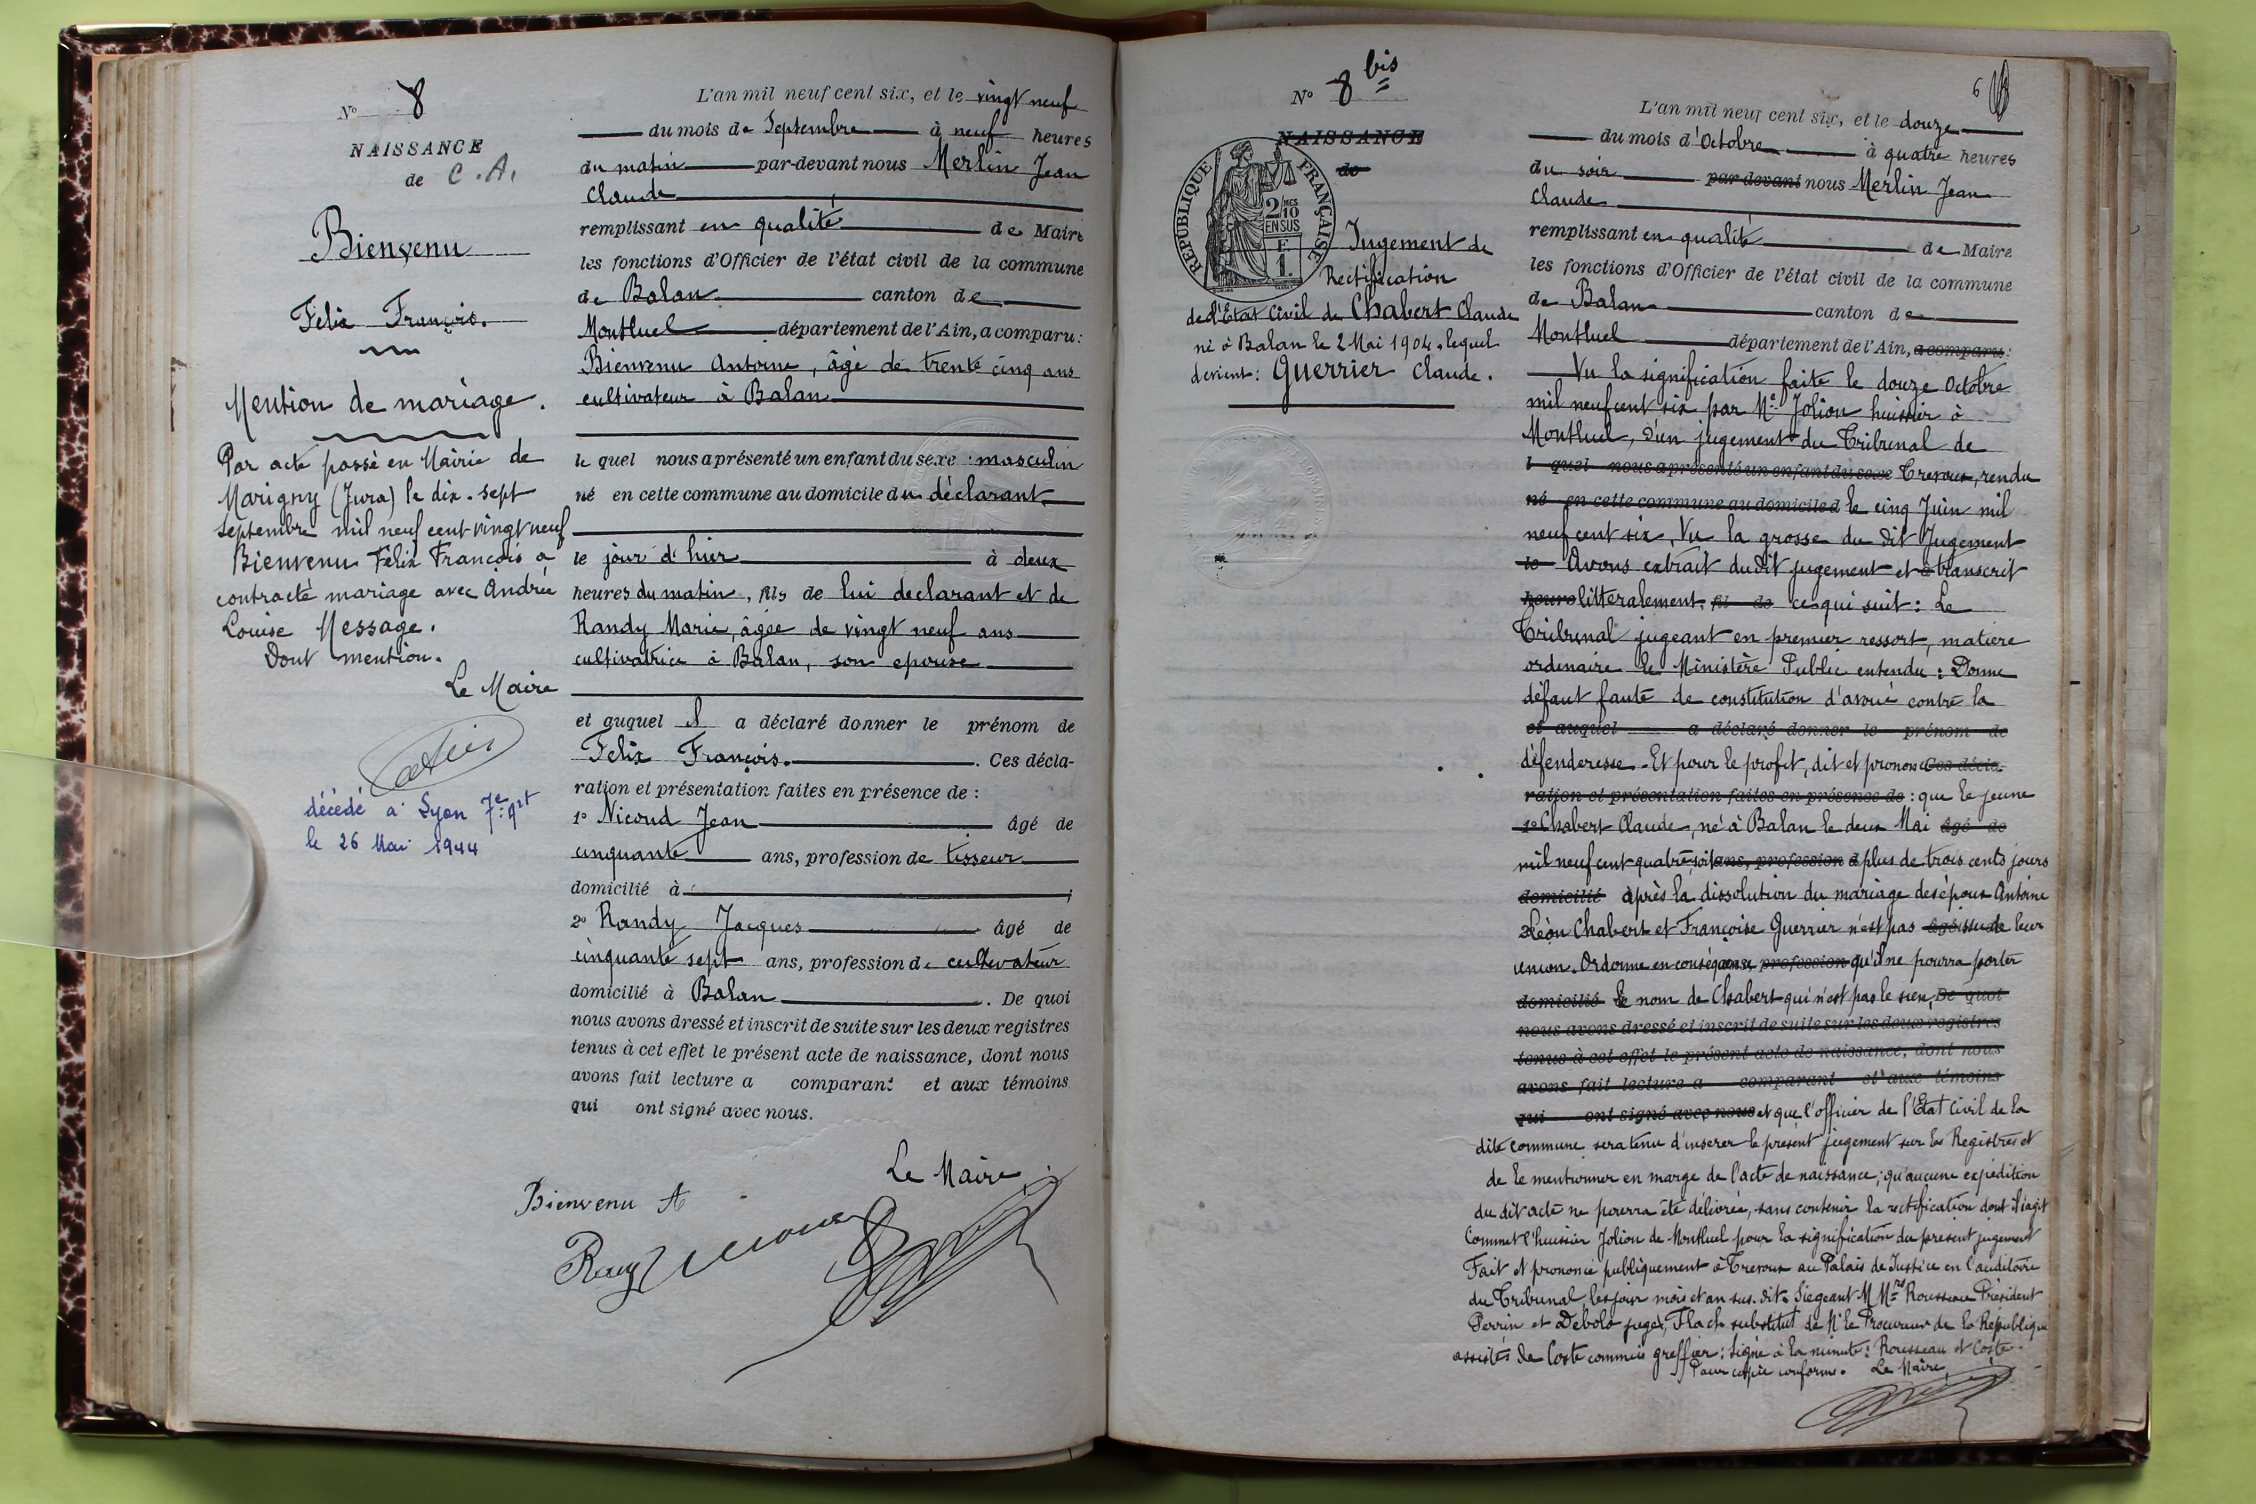 N° 8
NAISSANCE
de C. A.
Bienvenu
Felix François.
Mention de mariage.
Par acte passé en Mairie de
Marigny (Jura) le dix-sept
septembre mil neuf cent vingt neuf
Bienvenu Félix François a
contracté mariage avec Andrée
Louise Message.
Dont mention.
Le Maire
décédé à Lyon 7e Art
le 26 Mai 1944
L'an mil neuf cent six, et le vingt neuf
du mois de Septembre à neuf heures
du matin par-devant nous Merlin Jean
Claude
remplissant en qualité de Maire
les fonctions d'Officier de l'état civil de la commune
de Balan canton de
Montluel département de l'Ain, a comparu:
Bienvenu Antoine, âgé de trente cinq ans
cultivateur à Balan
le quel nous a présenté un enfant du sexe masculin
né en cette commune au domicile du déclarant
le jour d'hier à deux
heures du matin, fils de lui declarant et de
Randy Marie, âgée de vingt neuf ans
cultivatrice à Balan, son epouse
et auquel il a déclaré donner le prénom de
Felix François. Ces décla-
ration et présentation faites en présence de :
1° Nicoud Jean âgé de
cinquante ans, profession de tisseur
domicilié à ;
2° Randy Jacques âgé de
cinquante sept ans, profession de cultivateur
domicilié à Balan. De quoi
nous avons dressé et inscrit de suite sur les deux registres
tenus à cet effet le présent acte de naissance, dont nous
avons fait lecture a comparant et aux témoins
qui ont signé avec nous.
Le Maire
Bienvenu A
N° 8 bis
NAISSANCE
de
RÉPUBLIQUE FRANÇAISE
2/10 EN SUS
1.
Jugement de
Rectification
de l'Etat Civil de Chabert Claude
né à Balan le 2 Mai 1904, lequel
devient: Guerrier Claude.
6
L'an mil neuf cent six, et le douze
du mois d'Octobre à quatre heures
du soir par devant nous Merlin Jean
Claude
remplissant en qualité de Maire
les fonctions d'Officier de l'état civil de la commune
de Balan canton de
Montluel département de l'Ain, a comparu:
Vu la signification faite le douze Octobre
mil neuf cent six par Me Jolion huissier à
Montluel, d'un jugement du Tribunal de
l quel nous a présenté un enfant du sexe Trevoux, rendu
né en cette commune au domicile d le cinq Juin mil
neuf cent six, Vu la grosse du dit Jugement
le Avons extrait dudit jugement et à transcrit
heures litteralement, fil de ce qui suit: Le
Tribunal jugeant en premier ressort, matiere
ordinaire le Ministère Public entendu: Donne
défaut faute de constitution d'avoué contre la
et auquel a déclaré donner le prénom de
défenderesse. Et pour le profit, dit et prononce Ces décla-
ration et présentation faites en présence de : que le jeune
1° Chabert Claude, né à Balan le deux Mai âgé de
mil neuf cent quatre, soit ans, profession d plus de trois cents jours
domicilié après la dissolution du mariage des époux Antoine
2° Léon Chabert et Françoise Guerrier n'est pas âgé issu de leur
union. Ordonne en conséquence ans, profession qu'il ne pourra porter
domicilié le nom de Chabert qui n'est pas le sien, De quoi
nous avons dressé et inscrit de suite sur les deux registres
tenus à cet effet le présent acte de naissance, dont nous
avons fait lecture a comparant et aux témoins
qui ont signé avec nous et que l'officier de l'Etat Civil de la
dite commune sera tenu d'inserer le présent jugement sur les Registres et
de le mentionner en marge de l'acte de naissance; qu'aucune expédition
du dit acte ne pourra être délivrée, sans contenir la rectification dont il s'agit
Commet l'huissier Jolion de Montluel pour la signification du present jugement
Fait et prononcé publiquement à Trevoux au Palais de Justice en l'auditoire
du Tribunal, les jour mois et an sus-dits. Siegeant M Mrs Rousseau Président
Perrin et Debolo juges, Flach substitut de Mr le Procureur de la République
assistés de Coste commis greffier: Signé à la minute: Rousseau et Coste.
Pour copie conforme. Le Maire